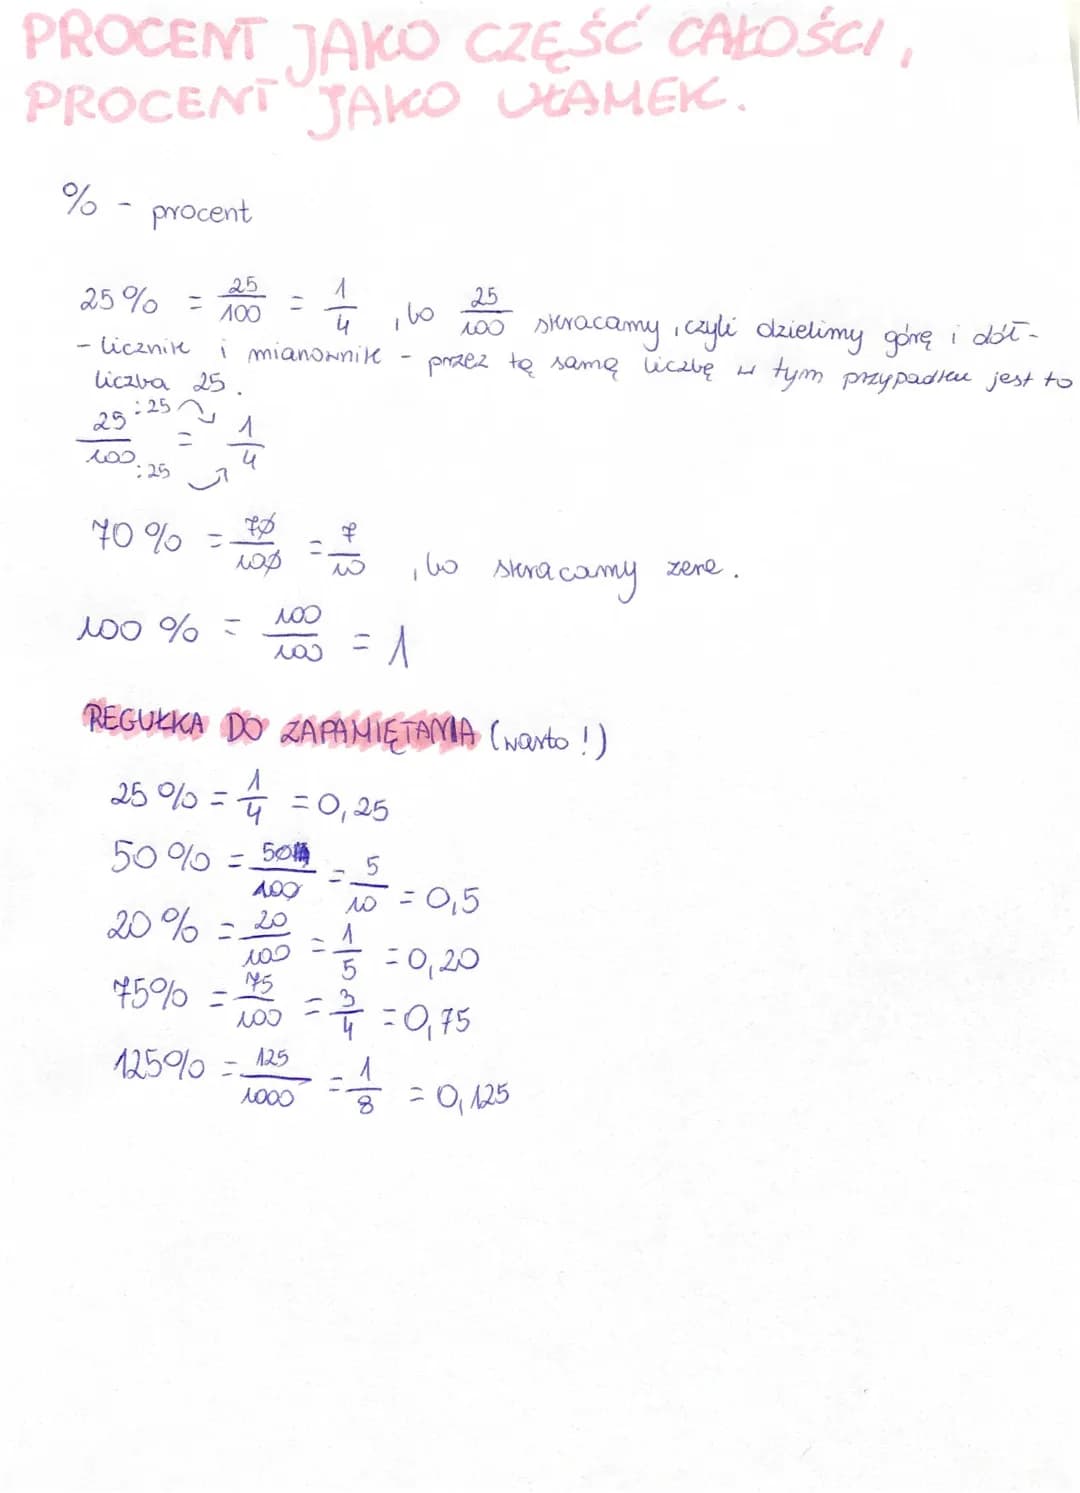 PROCENT JAKO CZĘŚĆ CAŁOŚCI,
PROCENT JAKO UŁAMEK.
% - procent
25% = 25/100 = 1/4, bo 25/100 skracamy, czyli dzielimy górę i dół -
- licznik i mianownik - przez tę samą liczbę w tym przypadku jest to
liczba 25.
25:25/100:25 = 1/4
70% = 70/100 = 7/10, bo skracamy zera.
100% = 100/100 = 1
REGUŁKA DO ZAPAMIĘTANIA (warto!)
25% = 1/4 = 0,25
50% = 50/100 = 5/10 = 0,5
20% = 20/100 = 1/5 = 0,20
75% = 75/100 = 3/4 = 0,75
125% = 125/1000 = 1/8 = 0,125